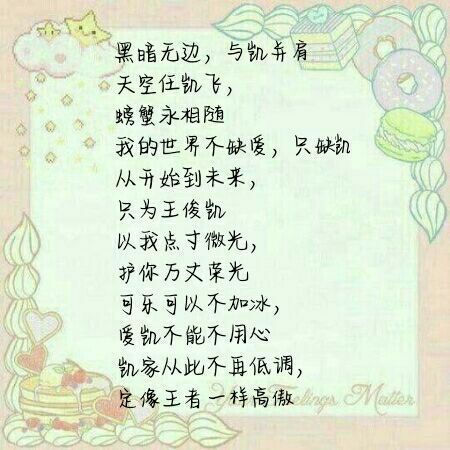 黑暗无边，与凯并肩
天空任凯飞，
螃蟹永相随
我的世界不缺爱，只缺凯
从开始到未来，
只为王俊凯
以我点寸微光，
护你万丈荣光
可乐可以不加冰，
爱凯不能不用心
凯家从此不再低调，
定像王者一样高傲
Feelings Matter